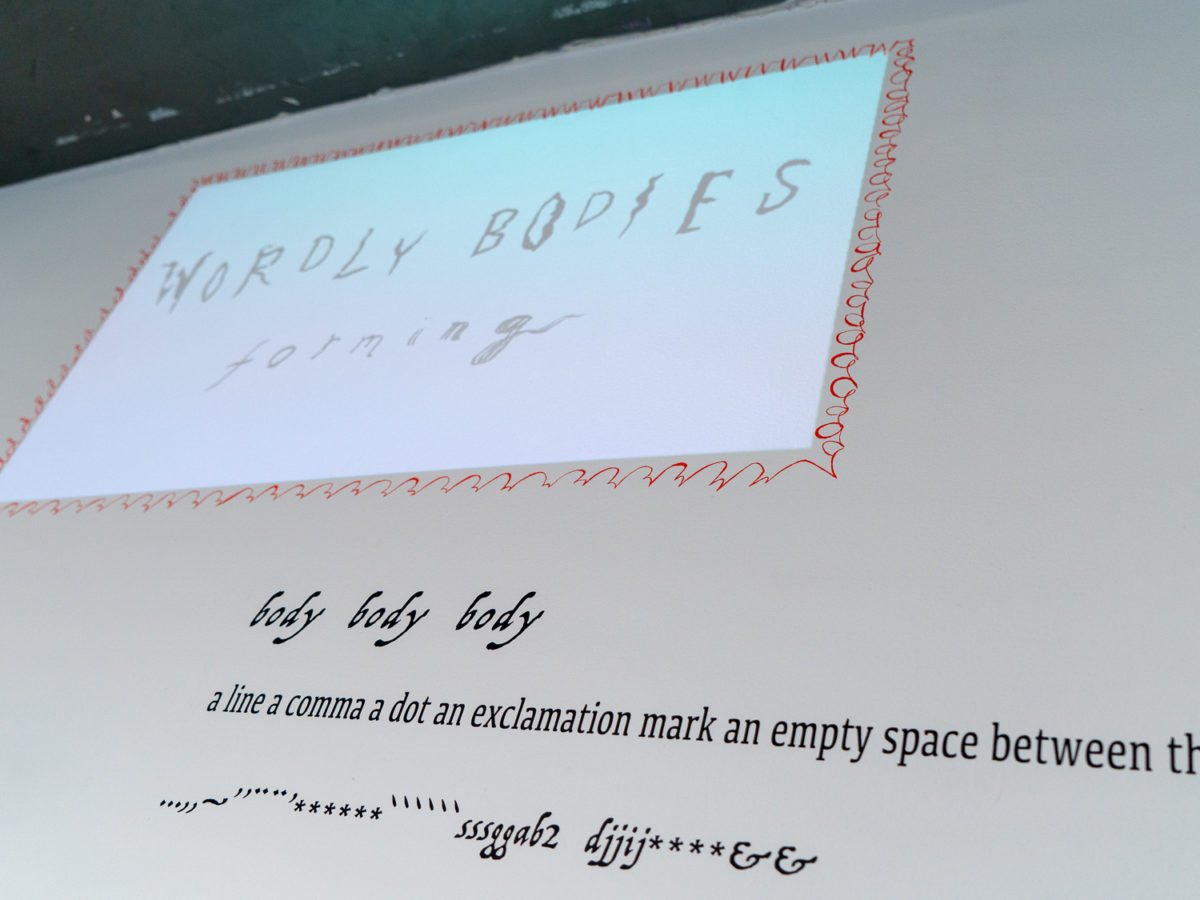 WORDLY BODIES
forming
body body body
a line a comma a dot an exclamation mark an empty space between
....,,~’’¨¨¨’******‵‵‵‵‵‵sssggab2 djjij****&&